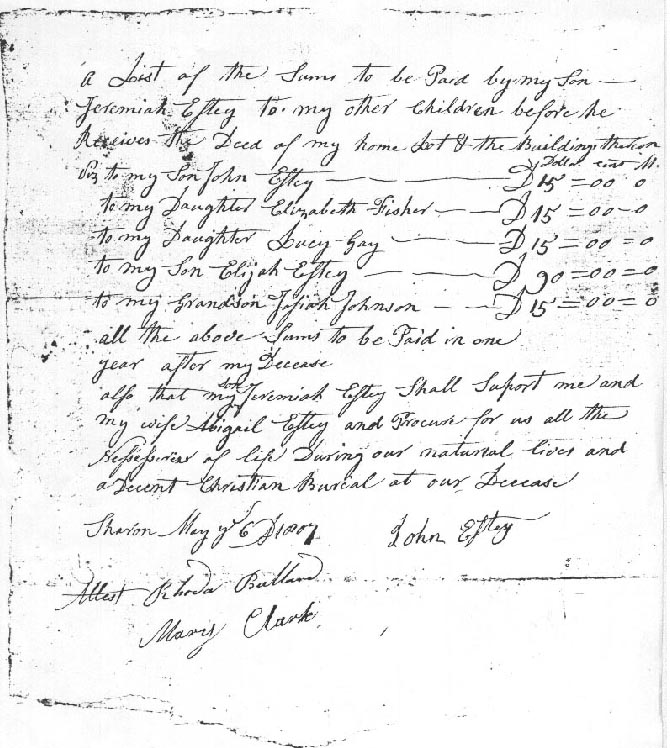 A List of the Sums to be Paid by my Son
Jeremiah Eſtey to my other Children before he
Receives the Deed of my home Lot & the Building thereon
Dollar cent M.
Viz to my Son John Eſtey — D 15 = 00 0
to my Daughter Elizabeth Fisher — D 15 = 00 - 0
to my Daughter Lucy Gay — D 15 = 00 = 0
to my Son Elijah Eſtey — D 90 = 00 = 0
to my Grandson Joſiah Johnson — D 15 = 00 = 0
all the above Sums to be Paid in one
year after my Decease
alſo that my Son Jeremiah Eſtey Shall Suport me and
my wife Abigail Eſtey and Procure for us all the
of life During our natural lives and
a Decent Christian Bureal at our Decease
Sharon May ye 6 D 1807 John Eſtey
Attest Rhoda Bullard
Clark